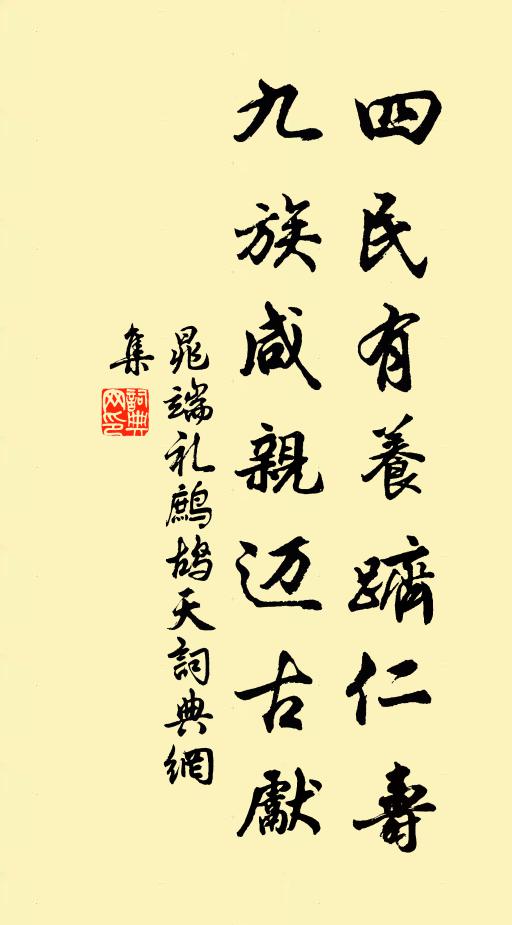 四民有養躋仁壽
九族咸親迈古獻
晁端礼鷓鴣天詞典網
集
詞典
网印